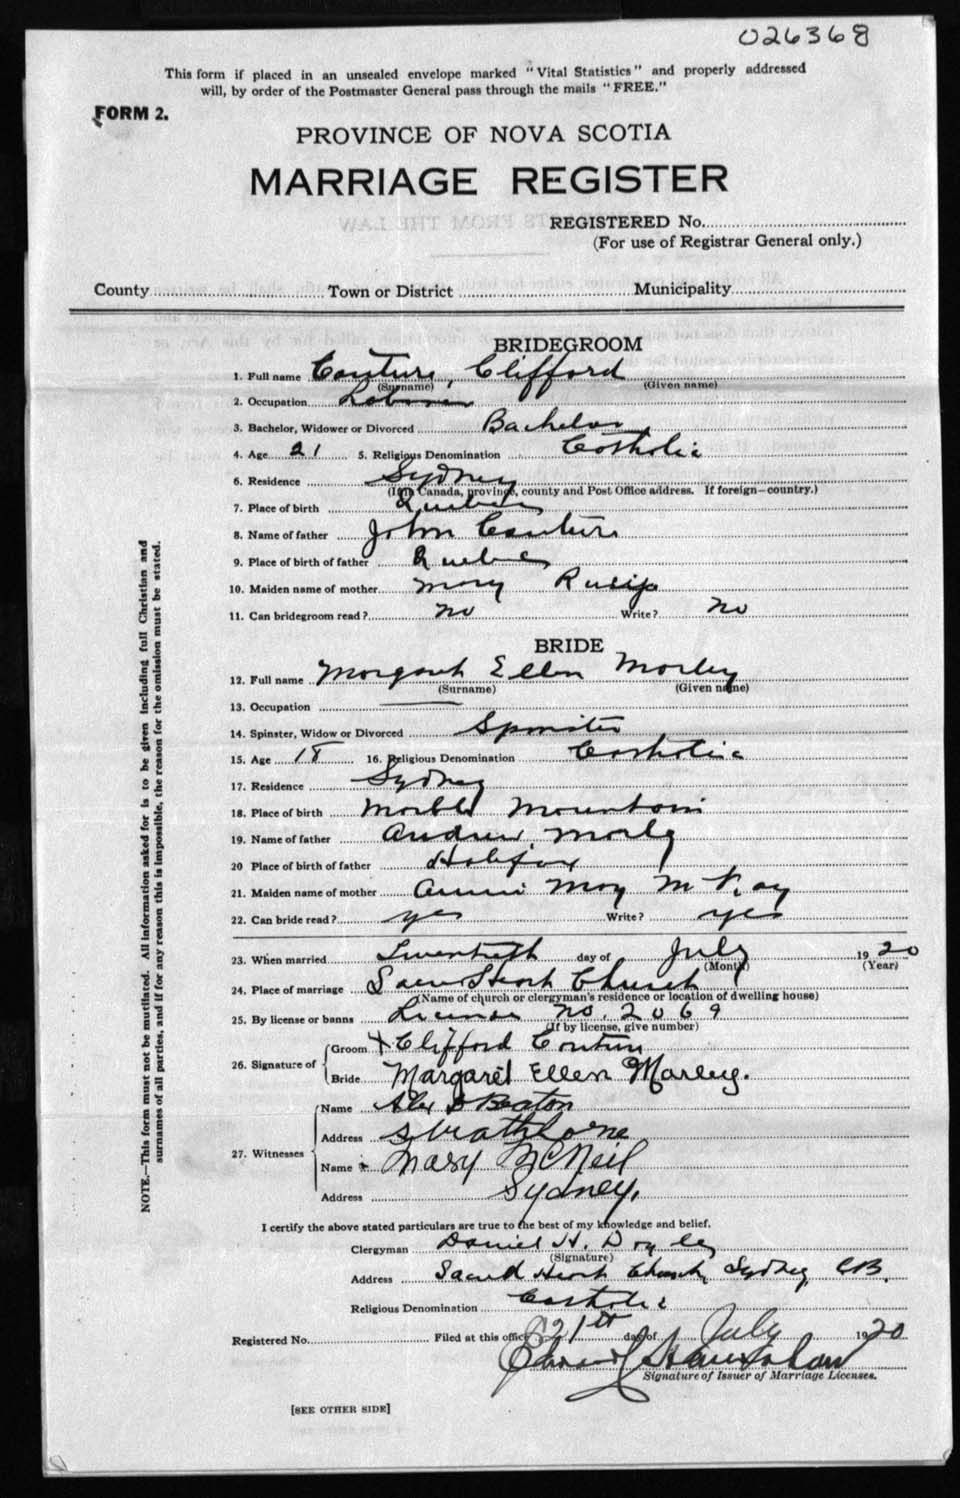 026368
This form if placed in an unsealed envelope marked "Vital Statistics" and properly addressed
will, by order of the Postmaster General pass through the mails "FREE."
FORM 2.
PROVINCE OF NOVA SCOTIA
MARRIAGE REGISTER
REGISTERED No.
(For use of Registrar General only.)
County Town or District Municipality
BRIDEGROOM
1. Full name Couture, Clifford
(Surname) (Given name)
2. Occupation Laborer
3. Bachelor, Widower or Divorced Bachelor
4. Age 21 5. Religious Denomination Catholic
6. Residence Sydney
(If in Canada, province, county and Post Office address. If foreign—country.)
7. Place of birth Quebec
8. Name of father John Couture
9. Place of birth of father Quebec
10. Maiden name of mother Mary
11. Can bridegroom read? no Write? no
BRIDE
12. Full name Margaret Ellen Morley
(Surname) (Given name)
13. Occupation
14. Spinster, Widow or Divorced Spinster
15. Age 18 16. Religious Denomination Catholic
17. Residence Sydney
18. Place of birth Marble Mountain
19. Name of father Andrew Morley
20 Place of birth of father Halifax
21. Maiden name of mother Annie May McKay
22. Can bride read? yes Write? yes
23. When married Twentieth day of July 1920
(Month) (Year)
24. Place of marriage Sacred Heart Church
(Name of church or clergyman's residence or location of dwelling house)
25. By license or banns License no. 2069
(If by license, give number)
26. Signature of Groom X Clifford Couture
Bride Margaret Ellen Marley.
27. Witnesses Name Alex D Beaton
Address Strathlorne
Name Mary McNeil
Address Sydney.
I certify the above stated particulars are true to the best of my knowledge and belief.
Clergyman Daniel H. Doyle
(Signature)
Address Sacred Heart Church, Sydney, C.B.
Religious Denomination Catholic
Registered No. Filed at this office 21st day of July 1920
Signature of Issuer of Marriage Licenses.
[SEE OTHER SIDE]
NOTE.—This form must not be mutilated. All information asked for is to be given including full Christian and
surnames of all parties, and if for any reason this is impossible, the reason for the omission must be stated.